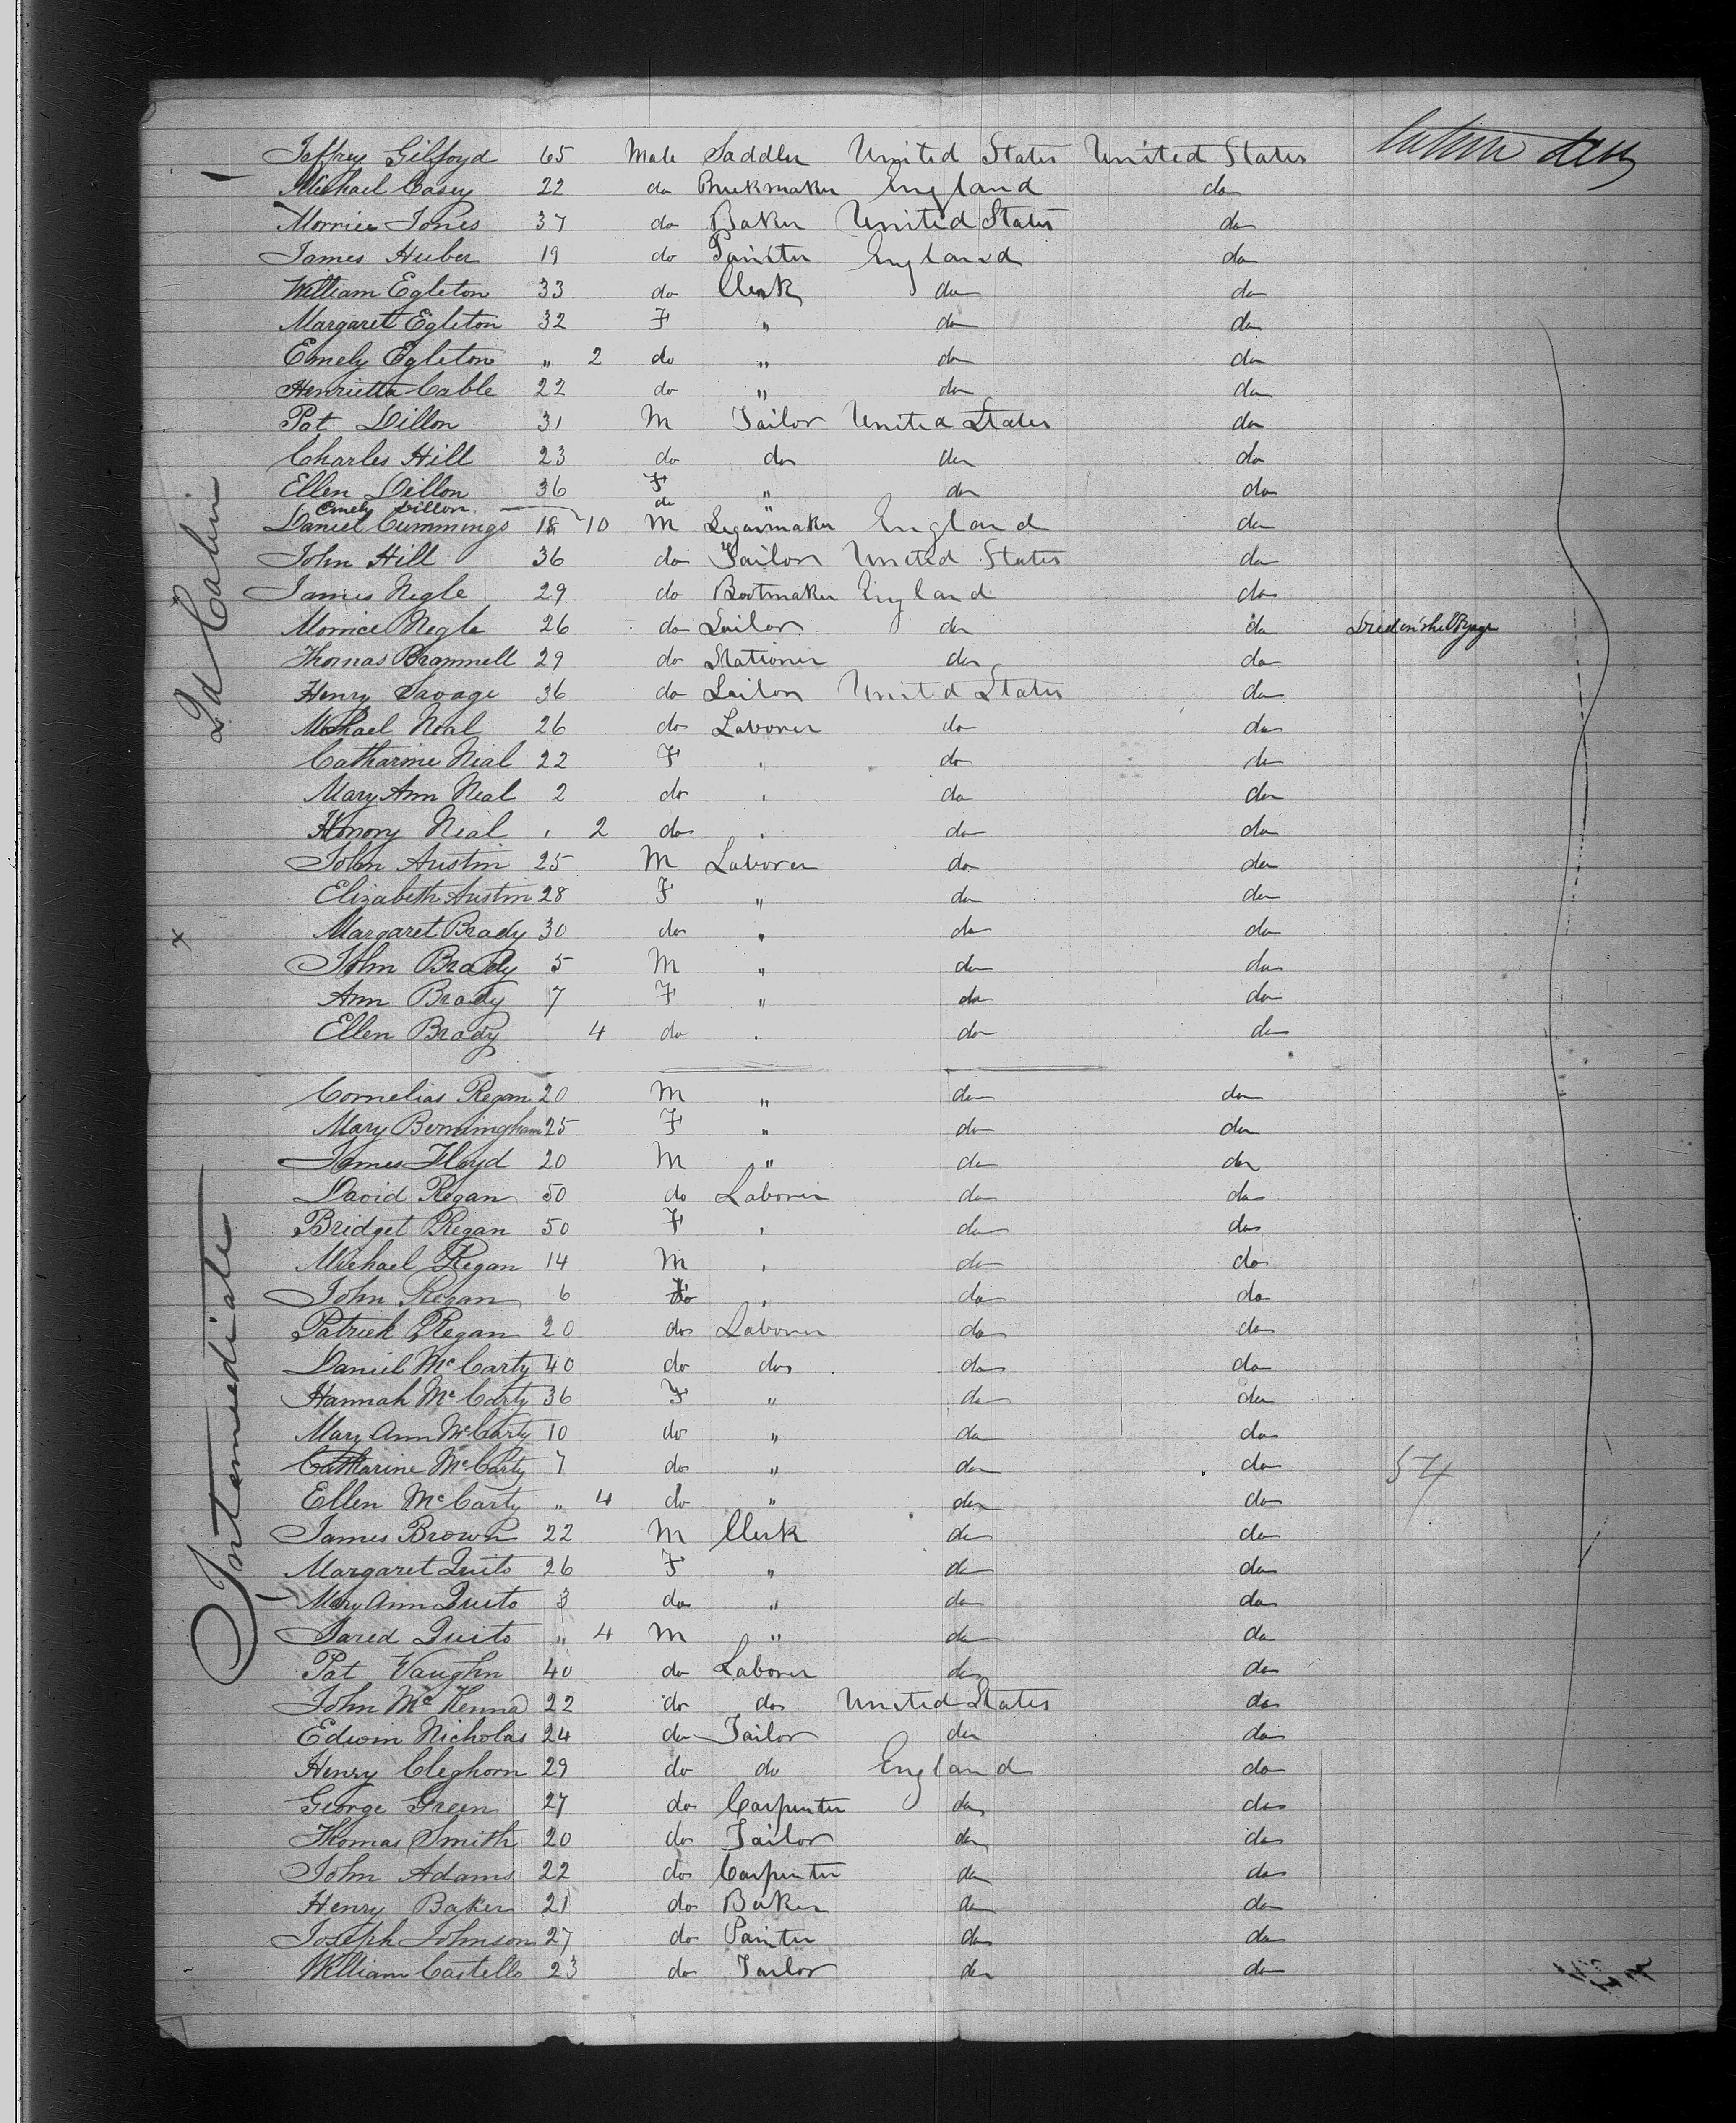 Jeffrey Gilfoyd 65 Male Saddler United States United States
Michael Casey 22 do Brickmaker England do
Morrice Jones 37 do Baker United States do
James Huber 19 do Painter England do
William Egleton 33 do Clerk do do
Margaret Egleton 32 F " do do
Emely Egleton " 2 do " do do
Henrietta Cable 22 do " do do
Pat Dillon 31 M Tailor United States do
Charles Hill 23 do do do do
Ellen Dillon 36 F " do do
Emely Dillon 10 do "
Daniel Cummings 18 M Segarmaker England do
John Hill 36 do Tailor United States do
James Negle 29 do Bootmaker England do
Morrice Negle 26 do Sailor do do Died on the Voyage
Thomas Brammell 29 do Stationer do do
Henry Savage 36 do Sailor United States do
Michael Neal 26 do Laborer do do
Catharine Neal 22 F " do do
Mary Ann Neal 2 do " do do
Honory Neal " 2 do " do do
John Austin 25 M Laborer do do
Elizabeth Austin 28 F " do do
Margaret Brady 30 do " do do
John Brady 5 M " do do
Ann Brady 7 F " do do
Ellen Brady 4 do " do do
2d Cabin
x
Cornelias Regan 20 M " do do
Mary Bermingham 25 F " do do
James Floyd 20 M " do do
David Regan 50 do Laborer do do
Bridget Regan 50 F " do do
Michael Regan 14 M " do do
John Regan 6 do " do do
Patrick Regan 20 do Laborer do do
Daniel McCarty 40 do do do do
Hannah McCarty 36 F " do do
Mary Ann McCarty 10 do " do do
Catharine McCarty 7 do " do do 54
Ellen McCarty " 4 do " do do
James Brown 22 M Clerk do do
Margaret Quito 26 F " do do
Mary Ann Quito 3 do " do do
Jared Quito " 4 M " do do
Pat Vaughn 40 do Laborer do do
John McKenna 22 do do United States do
Edwin Nicholas 24 do Tailor do do
Henry Cleghorn 29 do do England do
George Green 27 do Carpenter do do
Thomas Smith 20 do Tailor do do
John Adams 22 do Carpenter do do
Henry Baker 21 do Baker do do
Joseph Johnson 27 do Painter do do
William Castello 23 do Tailor do do
Intermediate